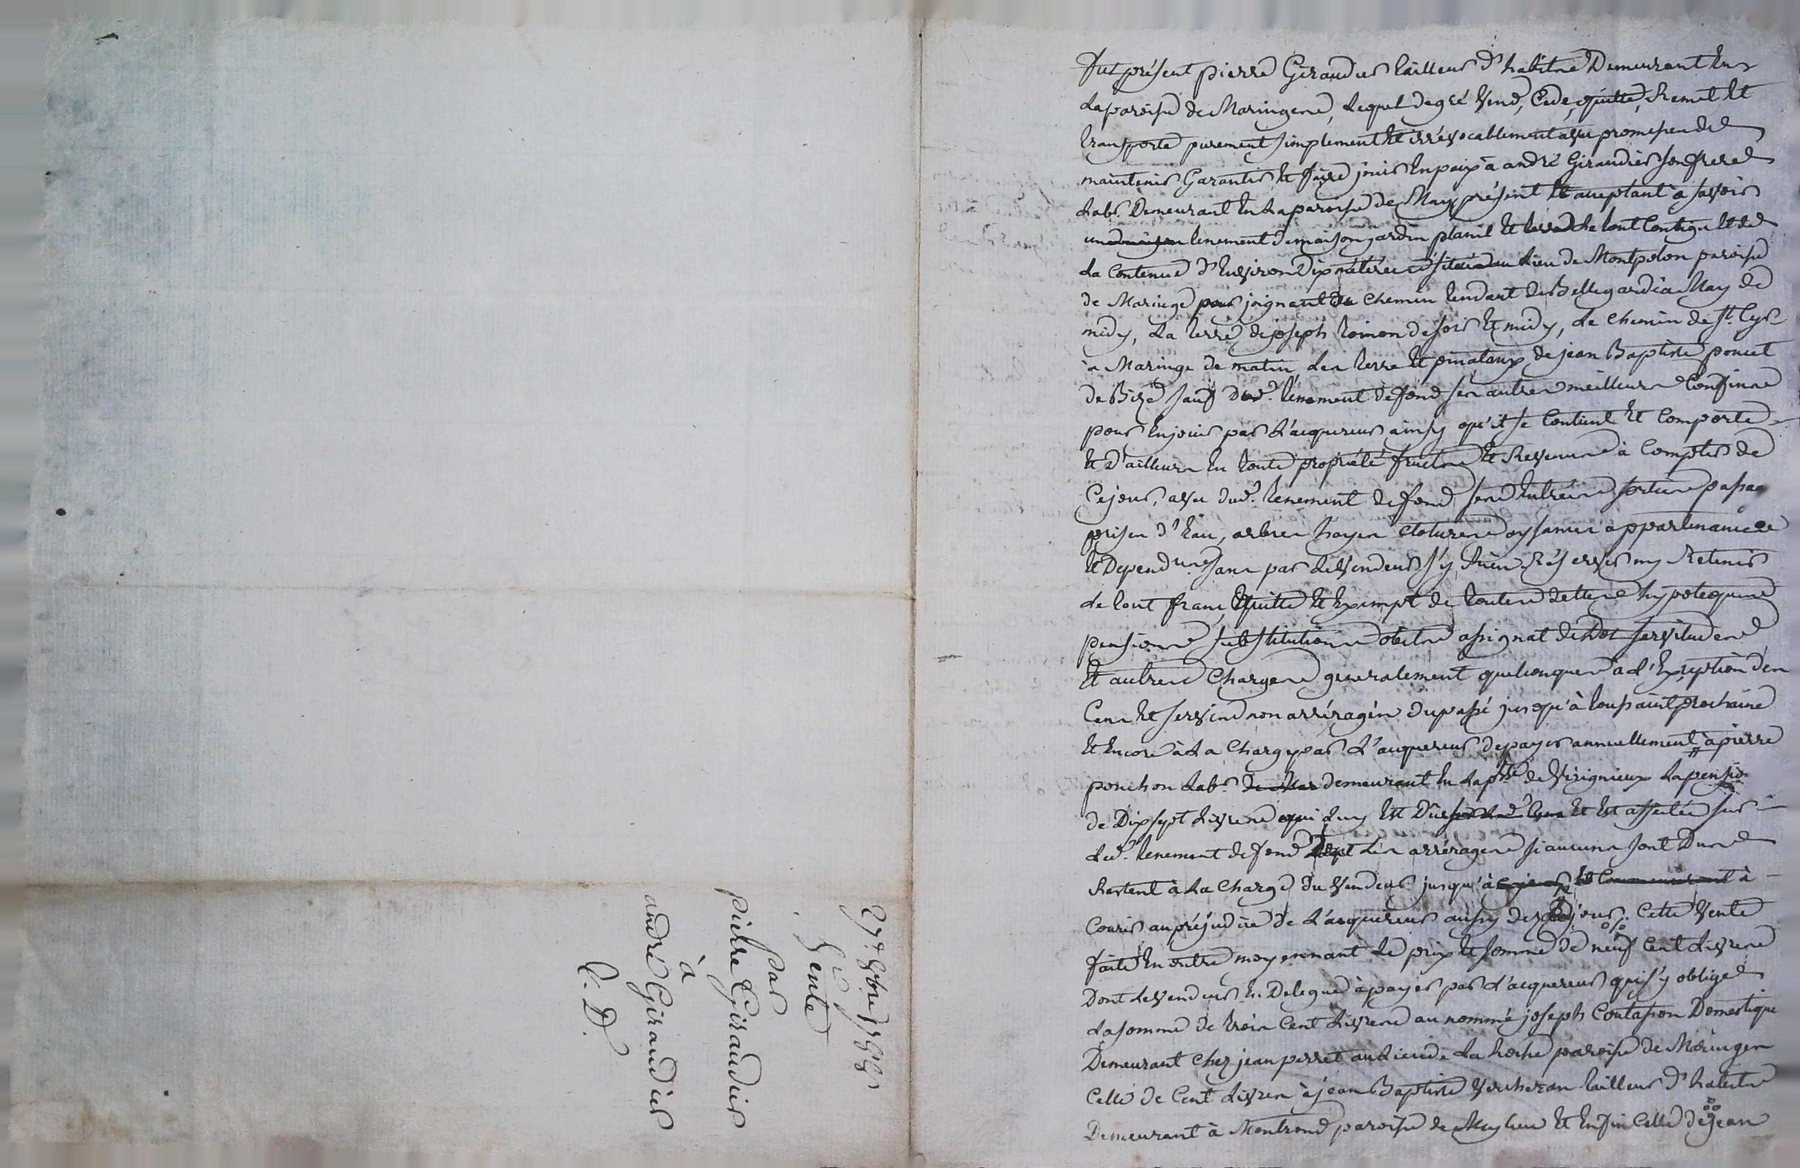 27e 8bre 1788
Vente
par
pierre Giraudier
à
andré Giraudier
C. D.
Fut présent pierre Giraudier tailleur d'habits Demeurant En
La paroisse de Maringes, Lequel de gré Vend, Cede, quitte, Remet Et
transporte purement simplement Et irrévocablement avec promesse de
maintenir Garantir Et faire jouir En paix à andré Giraudier son frere
Labr. Demeurant En La paroisse de May présent Et acceptant à savoir
un tenement de maison jardin Et terre Le tout Contigu Et de
La Contenue d'Environ Dix méterées situé au Lieu de Montpolon paroisse
de Maringe joignant Le Chemin tendant de Bellegarde à May de
midy, La terre de joseph de soir Et midy, Le Chemin de St. Cyr
à Maringe de matin Les terre Et pinateaux de jean Baptiste poncet
de Bize sauf Dud. tenement de fond ses autres meilleurs Confins
pour En jouir par L'acquereur ainsy qu'il se Contient Et Comporte
Et d'ailleurs En toute propriété fruits Et Revenus à Compter de
Ce jour, avec dud. tenement de fond ses Entrées sorties passages
prises d'Eau, arbres hayes clotures aysances appartenances
Et Dependces. sans par Le Vendeur s'y Rien Réserver ny Retenir
Le tout franc quitte Et Exempt de toutes dettes hypoteques
pensions substitutions obits assignat de Dot servitudes
Et autres Charges generalement quelconques à L'Exception des
Cens Et servis non arréragés du passé jusqu'à toussaint prochaine
Et Encore à La Charge par L'acquereur de payer annuellement à pierre
ponchon Labr. demeurant En La psse de Virignieux La pension
de Dix sept Livres qui Luy Est Düe Et Est affectée sur
Led. tenement de fond dont Les arrérages si aucuns sont Dus
Restent à La Charge du Vendeur jusqu'à à
Courir au préjudice de L'acquereur aussy dez Ce jour. Cette Vente
faite En outre moyennant Le prix Et somme de neuf Cent Livres
Dont Le Vendeur En Delegue à payer par L'acquereur qui s'y oblige
La somme de trois Cent Livres au nommé joseph Coutasson Domestique
Demeurant Chez jean perret au Lieu de La Roche paroisse de Maringes
Celle de Cent Livres à jean Baptiste Vercheran tailleur d'habits
Demeurant à Montrond paroisse de Meylieu Et Enfin Celle de jean